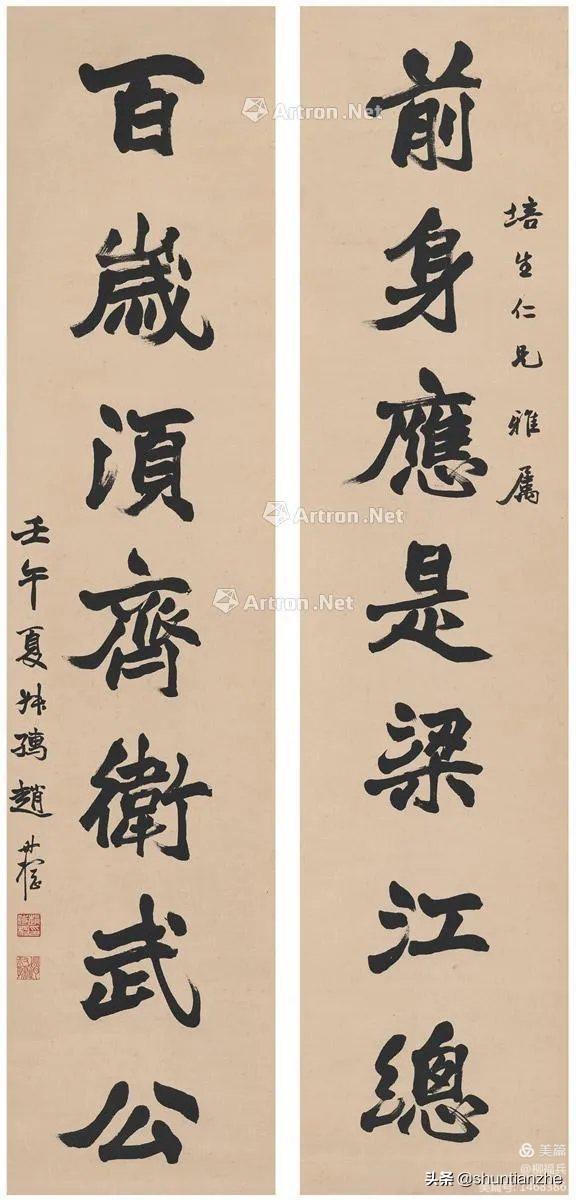 前身應是梁江總
培生仁兄雅属
百歲須齊衛武公
壬午夏叔孺趙
Artron.Net
Artron.Net
Artron.Net
Artron.Net
美篇
@柳福兵
头条 @shuntianzhe